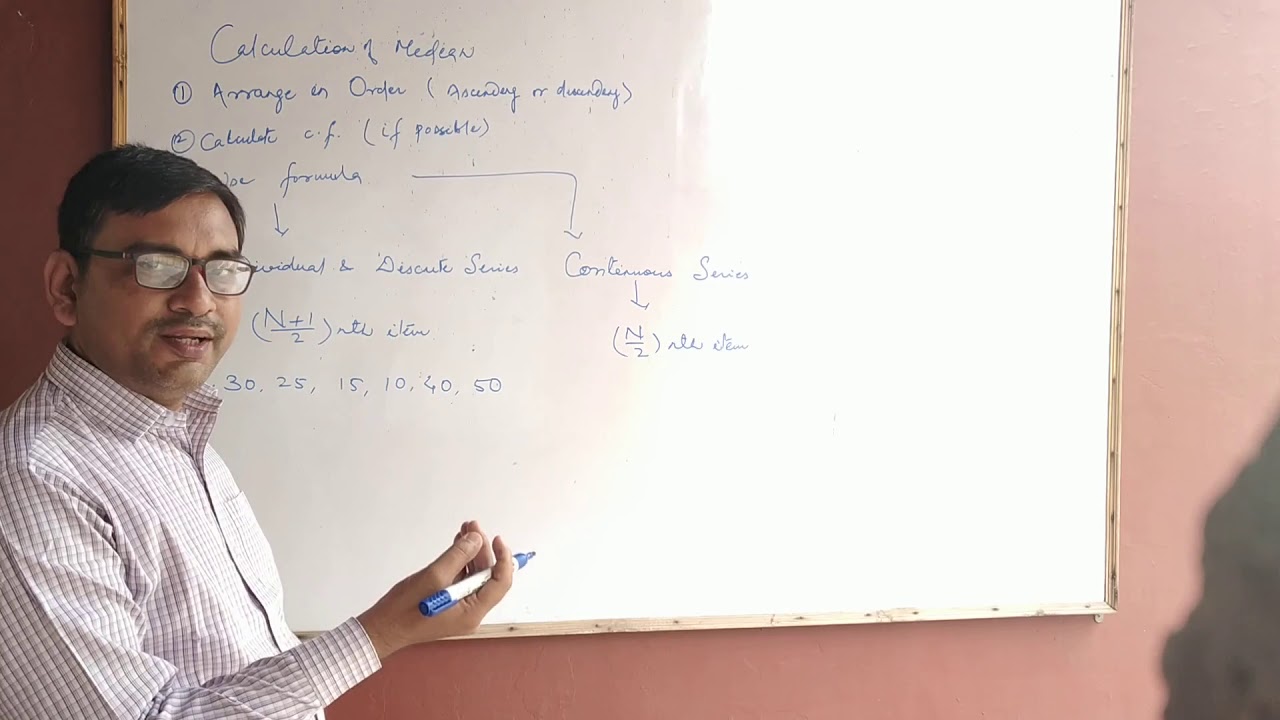 Calculation of Median
① Arrange in Order (Ascending or descending)
② Calculate c.f. (if possible)
Use formula
ividual & Discute Series Continuous Series
(N+1/2) nth item (N/2) nth item
30, 25, 15, 10, 40, 50